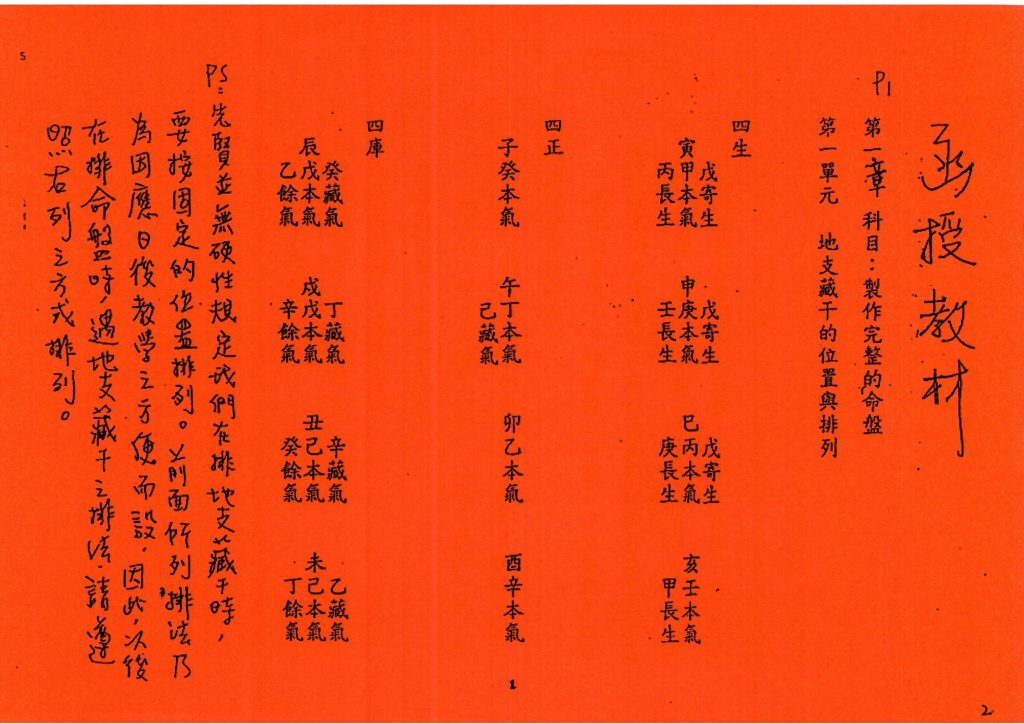 函授教材
P1
第一章 科目：製作完整的命盤
第一單元 地支藏干的位置與排列
四生
戊寄生
寅甲本氣
丙長生
戊寄生
申庚本氣
壬長生
戊寄生
巳丙本氣
庚長生
亥壬本氣
甲長生
四正
子癸本氣
午丁本氣
己藏氣
卯乙本氣
酉辛本氣
四庫
癸藏氣
辰戊本氣
乙餘氣
丁藏氣
戌戊本氣
辛餘氣
辛藏氣
丑己本氣
癸餘氣
乙藏氣
未己本氣
丁餘氣
PS：先賢並無硬性規定我們在排地支藏干時，
要按固定的位置排列。前面所列排法乃
為因應日後教學之方便而設，因此，以後
在排命盤時，遇地支藏干之排法，請遵
照右列之方式排列。
5
1
2